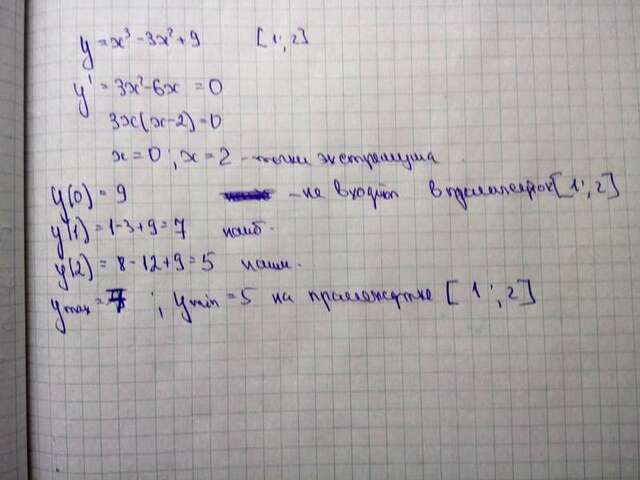 y = x³ - 3x² + 9 [1; 2]
y' = 3x² - 6x = 0
3x(x - 2) = 0
x = 0; x = 2 - точки экстремума
y(0) = 9 - не входит в промежуток [1; 2]
y(1) = 1 - 3 + 9 = 7 наиб.
y(2) = 8 - 12 + 9 = 5 наим.
y max = 7; y min = 5 на промежутке [1; 2]